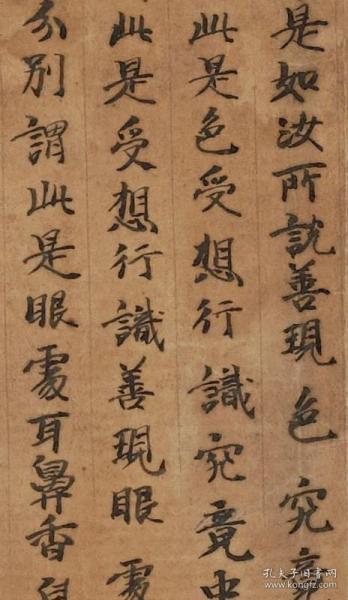 是如汝所說善現色究竟
此是色受想行識究竟中
此是受想行識善現眼處
分別謂此是眼處耳鼻香
孔夫子旧书网
www.kongfz.com